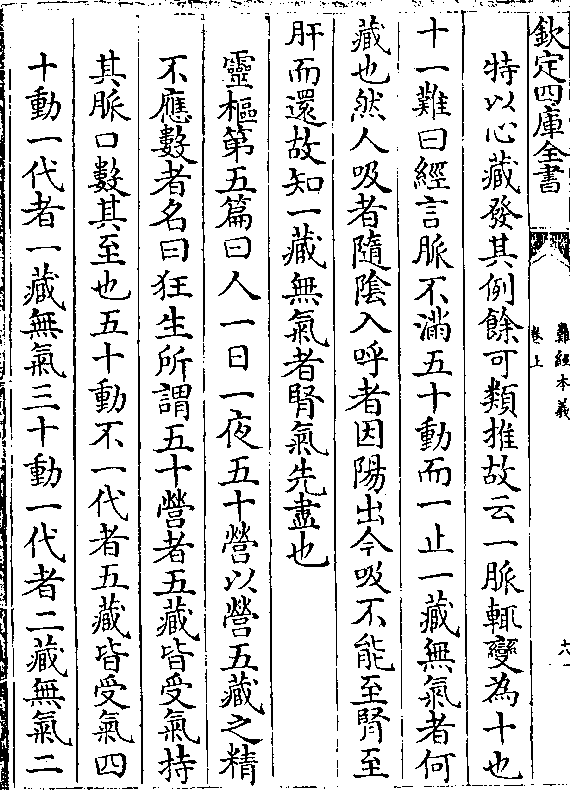 欽定四庫全書
難經本義
卷上
六
特以心藏發其例餘可類推故云一脈輒變為十也
十一難曰經言脈不滿五十動而一止一藏無氣者何
藏也然人吸者隨陰入呼者因陽出今吸不能至腎至
肝而還故知一藏無氣者腎氣先盡也
靈樞第五篇曰人一日一夜五十營以營五藏之精
不應數者名曰狂生所謂五十營者五藏皆受氣持
其脈口數其至也五十動不一代者五藏皆受氣四
十動一代者一藏無氣三十動一代者二藏無氣二